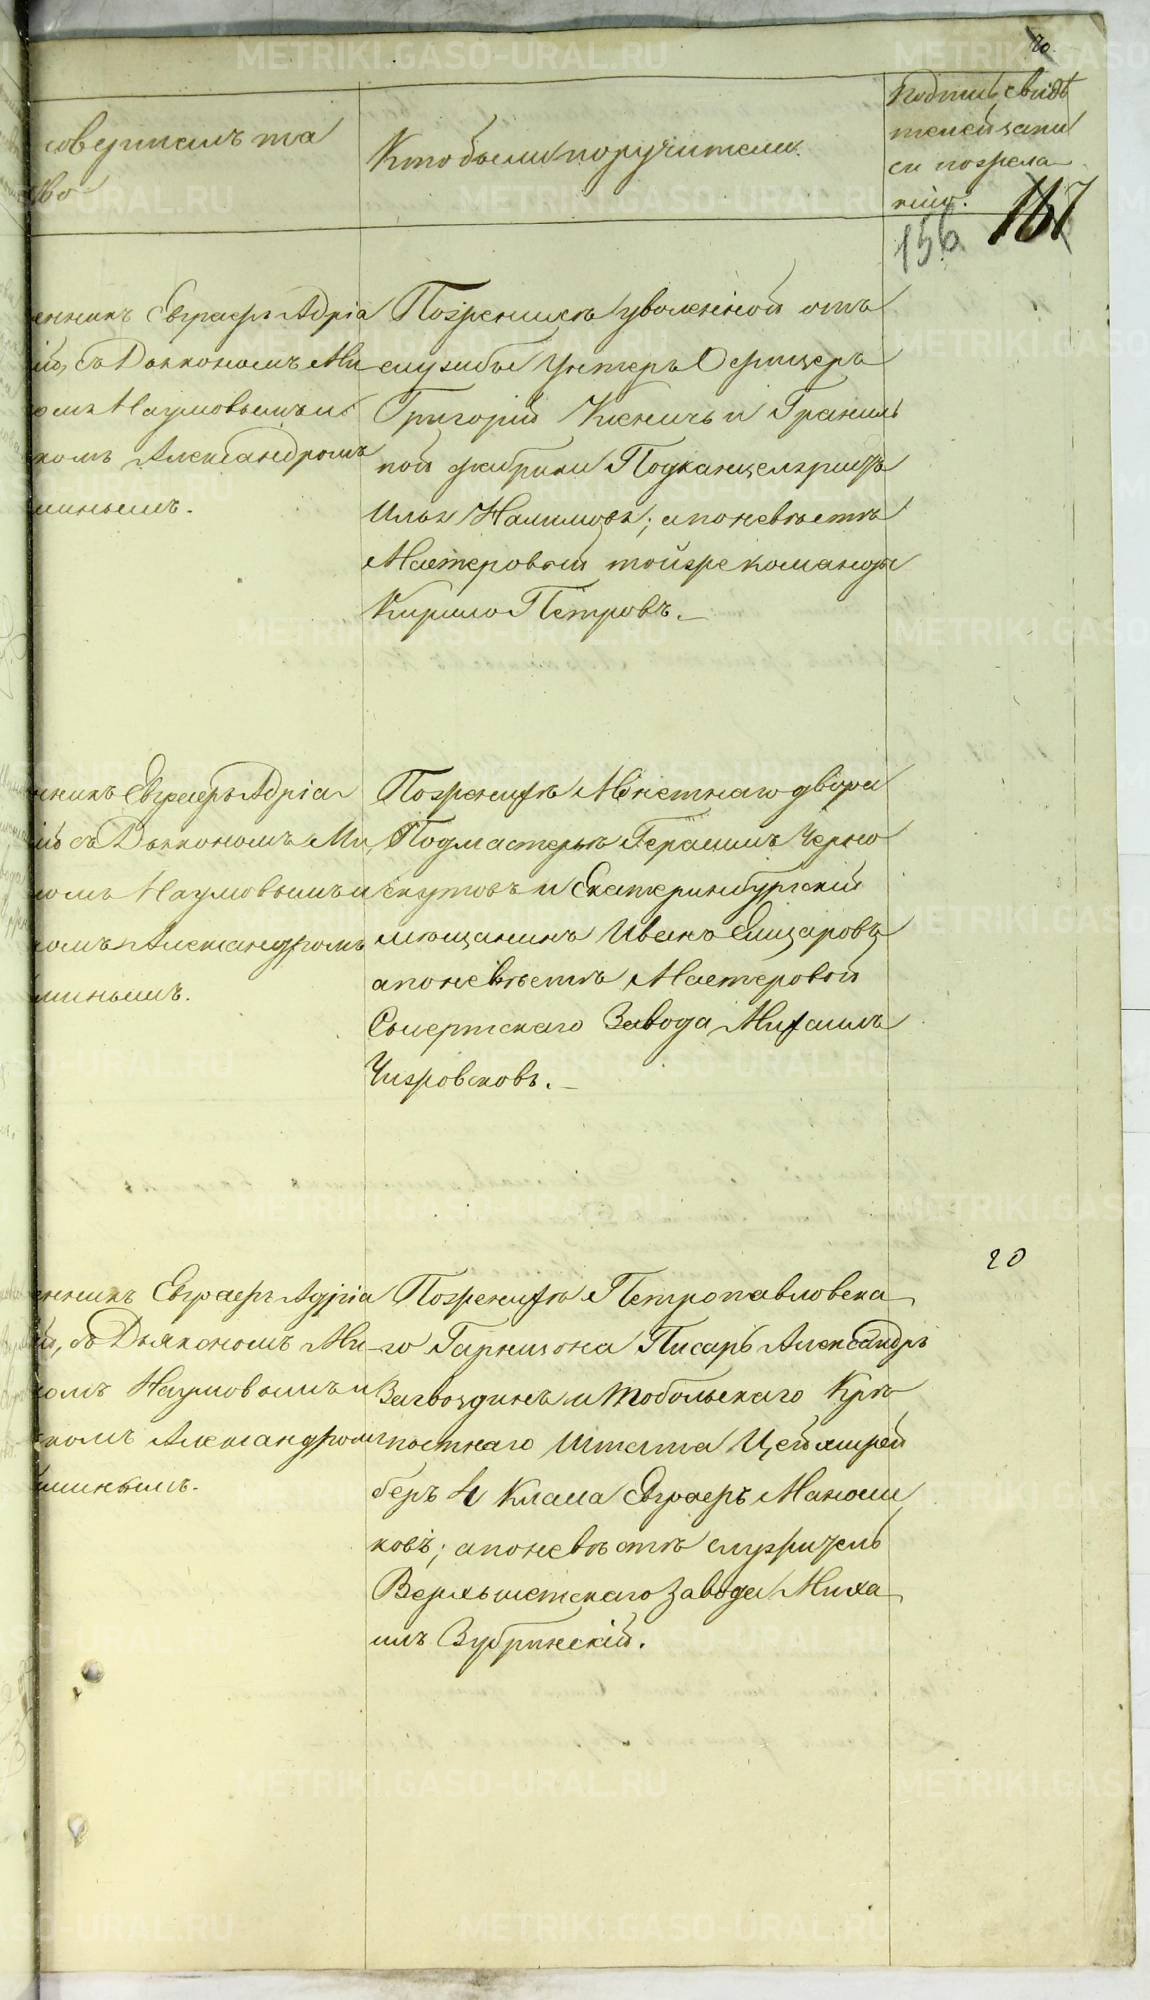 20.
совершалъ та
во
Кто были поручители.
Подпись свидѣ
телей запи
си по жела
нію.
156
167
енникъ Евграфъ Адріа
съ Дьякономъ Ми
Наумовымъ и
комъ Александромъ
миньымъ.
По женихѣ уволенной отъ
службы Унтеръ Офицеръ
Григорій Кспичъ и Граниль
ной фабрики Подканцеляристъ
Илья Налимовъ; а по невѣстѣ
Мастеровой той же команды
Кирило Петровъ.
нникъ Евграфъ Адріа
съ Дьякономъ Ми
ломъ Наумовымъ и
комъ Александромъ
миньымъ.
По женихѣ Монетнаго двора
Подмастерье Герасимъ Черно
скутовъ и Екатеринбургскій
мѣщанинъ Иванъ Елизаровъ
а по невѣстѣ Мастеровой
Сысертскаго Завода Михаилъ
Чижовсковъ.
20
енникъ Евграфъ Адріа
съ Дьякономъ Ми
ломъ Наумовымъ и
комъ Александромъ
миньымъ.
По женихѣ Петропавловска
го Гарнизона Писарь Александръ
Загвоздинъ и Тобольскаго Крѣ
постнаго Штата Цейхшрей
беръ 4 Класса Евграфъ Маною
ковъ; а по невѣстѣ служитель
Верхъисетскаго Завода Миха
илъ Зубринскій.
METRIKI.GASO-URAL.RU